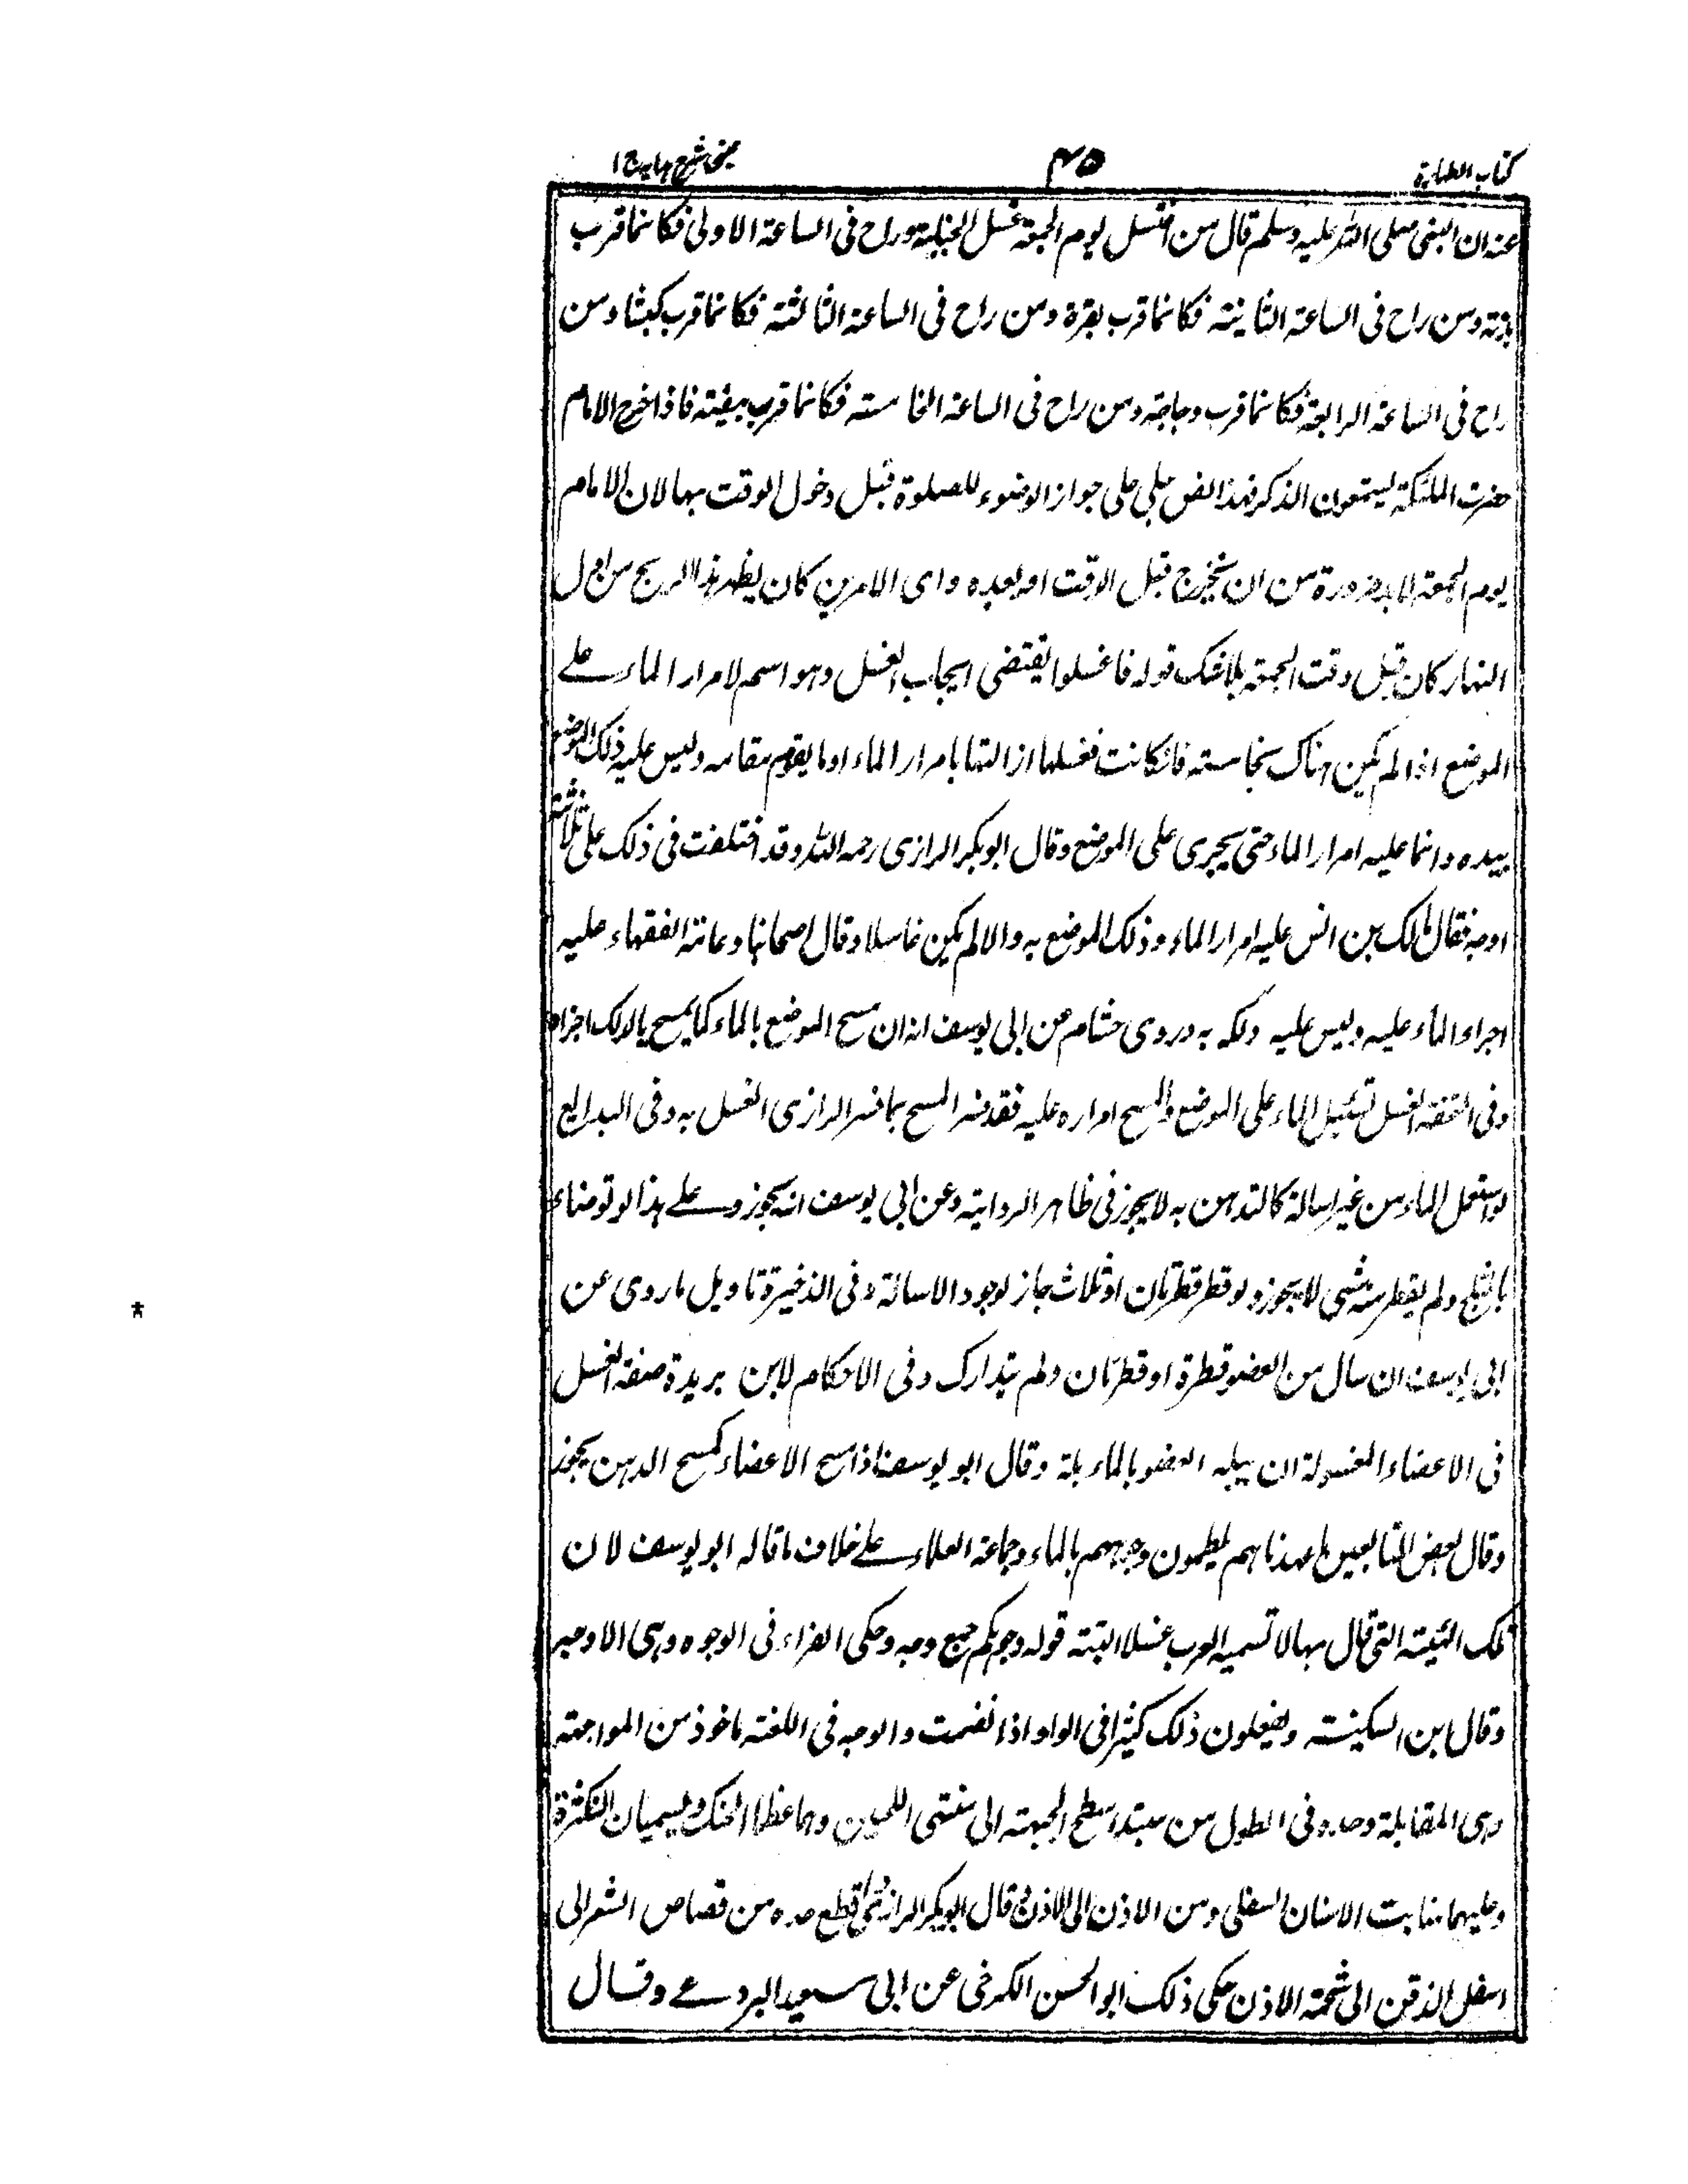 كتاب الطهارة
٤٥
عينى شرح هدايه ج ١
عنه ان النبى صلى الله عليه وسلم قال من اغتسل يوم الجمعة غسل الجنابة وراح فى الساعة الاولى فكانما قرب
بدنة ومن راح فى الساعة الثانية فكانما قرب بقرة ومن راح فى الساعة الثالثة فكانما قرب كبشا ومن
راح فى الساعة الرابعة فكانما قرب دجاجة ومن راح فى الساعة الخامسة فكانما قرب بيضة فاذا خرج الامام
حضرت الملئكة يستمعون الذكر فهذا نص جلى على جواز الوضوء للصلوة قبل دخول الوقت بها لان الامام
يوم الجمعة لا بد ضرورة من ان يخرج قبل الوقت او بعده واى الامرين كان يظهر هذا الريح من اول
النهار كان قبل وقت الجمعة بلا شك قوله فاغسلوا يقتضى ايجاب الغسل وهو اسم لامرار الماء على
الموضع اذا لم يكن هناك نجاسة فان كانت فغسلها ازالتها بامرار الماء او ما يقوم مقامه وليس عليه ذلك الموضع
بيده وانما عليه امرار الماء حتى يجرى على الموضع وقال ابو بكر الرازى رحمه الله وقد اختلفت فى ذلك على ثلاثة
اوجه فقال مالك بن انس عليه امرار الماء وذلك الموضع به والا لم يكن غاسلا وقال اصحابنا وعامة الفقهاء عليه
اجراء الماء عليه وليس عليه دلكه به وروى هشام عن ابى يوسف انه ان مسح الموضع بالماء كما يمسح بالدلك اجزاه
وفى التحفة الغسل تسييل الماء على الموضع والمسح امراره عليه فقد فسر المسح بما فسر الرازى الغسل به وفى البدايع
لو استعمل الماء من غير اسالة كالتدهن به لا يجوز فى ظاهر الرواية وعن ابى يوسف انه يجوز وعلى هذا لو توضاء
بالثلج ولم يقطر منه شئ لا يجوز ولو قطر قطرتان او ثلاث جاز لوجود الاسالة وفى الذخيرة تاويل ما روى عن
ابى يوسف ان سال من العضو قطرة او قطرتان ولم يتدارك وفى الاحكام لابن بريدة صفة الغسل
فى الاعضاء المغسولة ان يبله العضو بالماء بلة وقال ابو يوسف اذا مسح الاعضاء كمسح الدهن يجوز
وقال بعض التابعين ما عهدناهم يلطمون وجوههم بالماء وجماعة العلماء على خلاف ما قاله ابو يوسف لان
تلك الهيئة التى قال بها لا تسميه العرب غسلا البتة قوله وجوهكم جمع وجه وحكى الفراء فى الوجوه وهى الاوجه
وقال ابن السكيت ويفعلون ذلك كثيرا فى الواو اذا انضمت والوجه فى اللغة ماخوذ من المواجهة
وهى المقابلة وحده فى الطول من مبتدا سطح الجبهة الى منتهى اللحيين وهما عظما الحنك ويسميان الفكثرة
وعليهما منابت الاسنان السفلى ومن الاذن الى الاذن قال ابو بكر الرازى قطع حده من قصاص الشعر الى
اسفل الذقن الى شحمة الاذن حكى ذلك ابو الحسن الكرخى عن ابى سعيد البردعى وقال
*